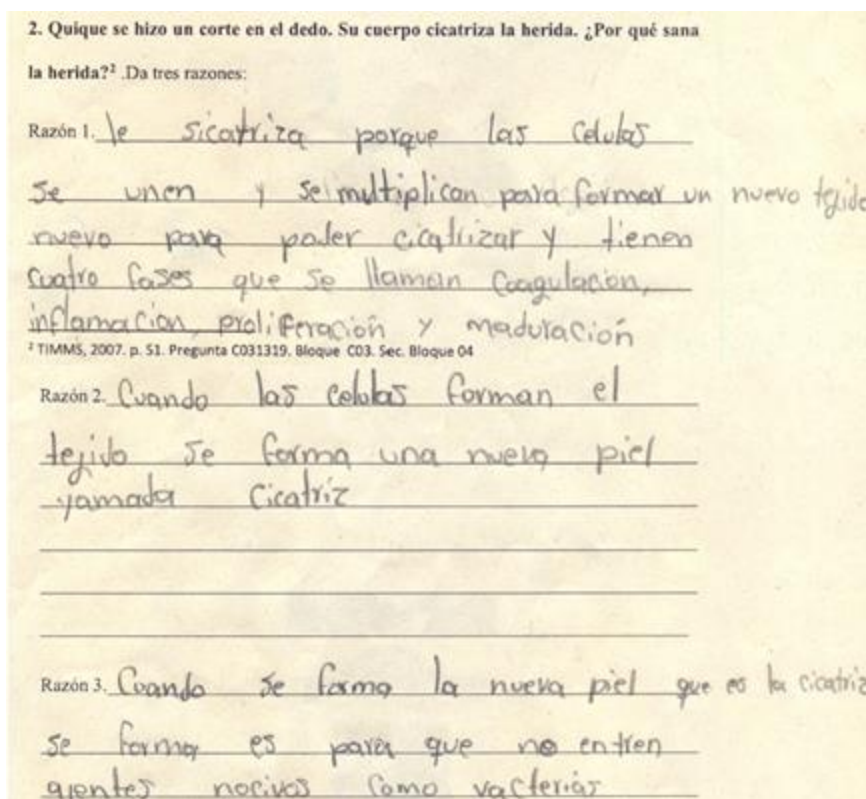 2. Quique se hizo un corte en el dedo. Su cuerpo cicatriza la herida. ¿Por qué sana
la herida?² .Da tres razones:
Razón 1. le sicatriza porque las celulas
se unen y se multiplican para formar un nuevo tejido
nuevo para poder cicatrizar y tienen
cuatro fases que se llaman Coagulacion,
inflamacion, proliferación y maduración
² TIMMS, 2007. p. 51. Pregunta C031319. Bloque C03. Sec. Bloque 04
Razón 2. Cuando las celulas forman el
tejido se forma una nueva piel
yamada Cicatriz
Razón 3. Cuando se forma la nueva piel que es la cicatriz
se forma es para que no entren
agentes nocivos como vacterias